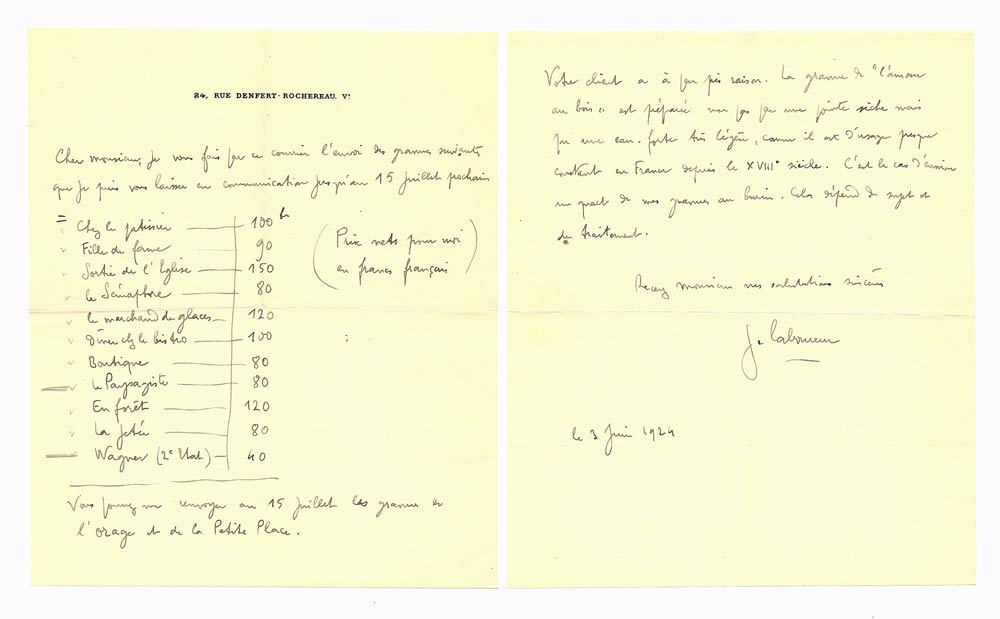 24, RUE DENFERT-ROCHEREAU. Ve
Cher monsieur, je vous fais par ce courrier l'envoi des gravures suivantes
que je puis vous laisser en communication jusqu'au 15 juillet prochain
= Chez le patissier 100 fr
Fille de ferme 90
Sortie de l'Eglise 150
le Sémaphore 80
le marchand de glaces 120
Diner chez le bistro 100
Boutique 80
le Paysagiste 80
En forêt 120
La Jetée 80
Wagner (2e Etat) 40
(Prix nets pour moi
en francs français)
Vous pouvez me renvoyer au 15 juillet les gravures de
l'orage et de la Petite Place.
Votre client a à peu près raison. La gravure de "l'amour
au bois" est préparée non pas par une pointe sèche mais
par une eau-forte très légère, comme il est d'usage presque
constant en France depuis le XVIIIe siècle. C'est le cas d'environ
un quart de mes gravures au burin. Cela dépend du sujet et
du traitement.
Recevez monsieur mes salutations sincères
J. e. Laboureur
le 3 Juin 1924